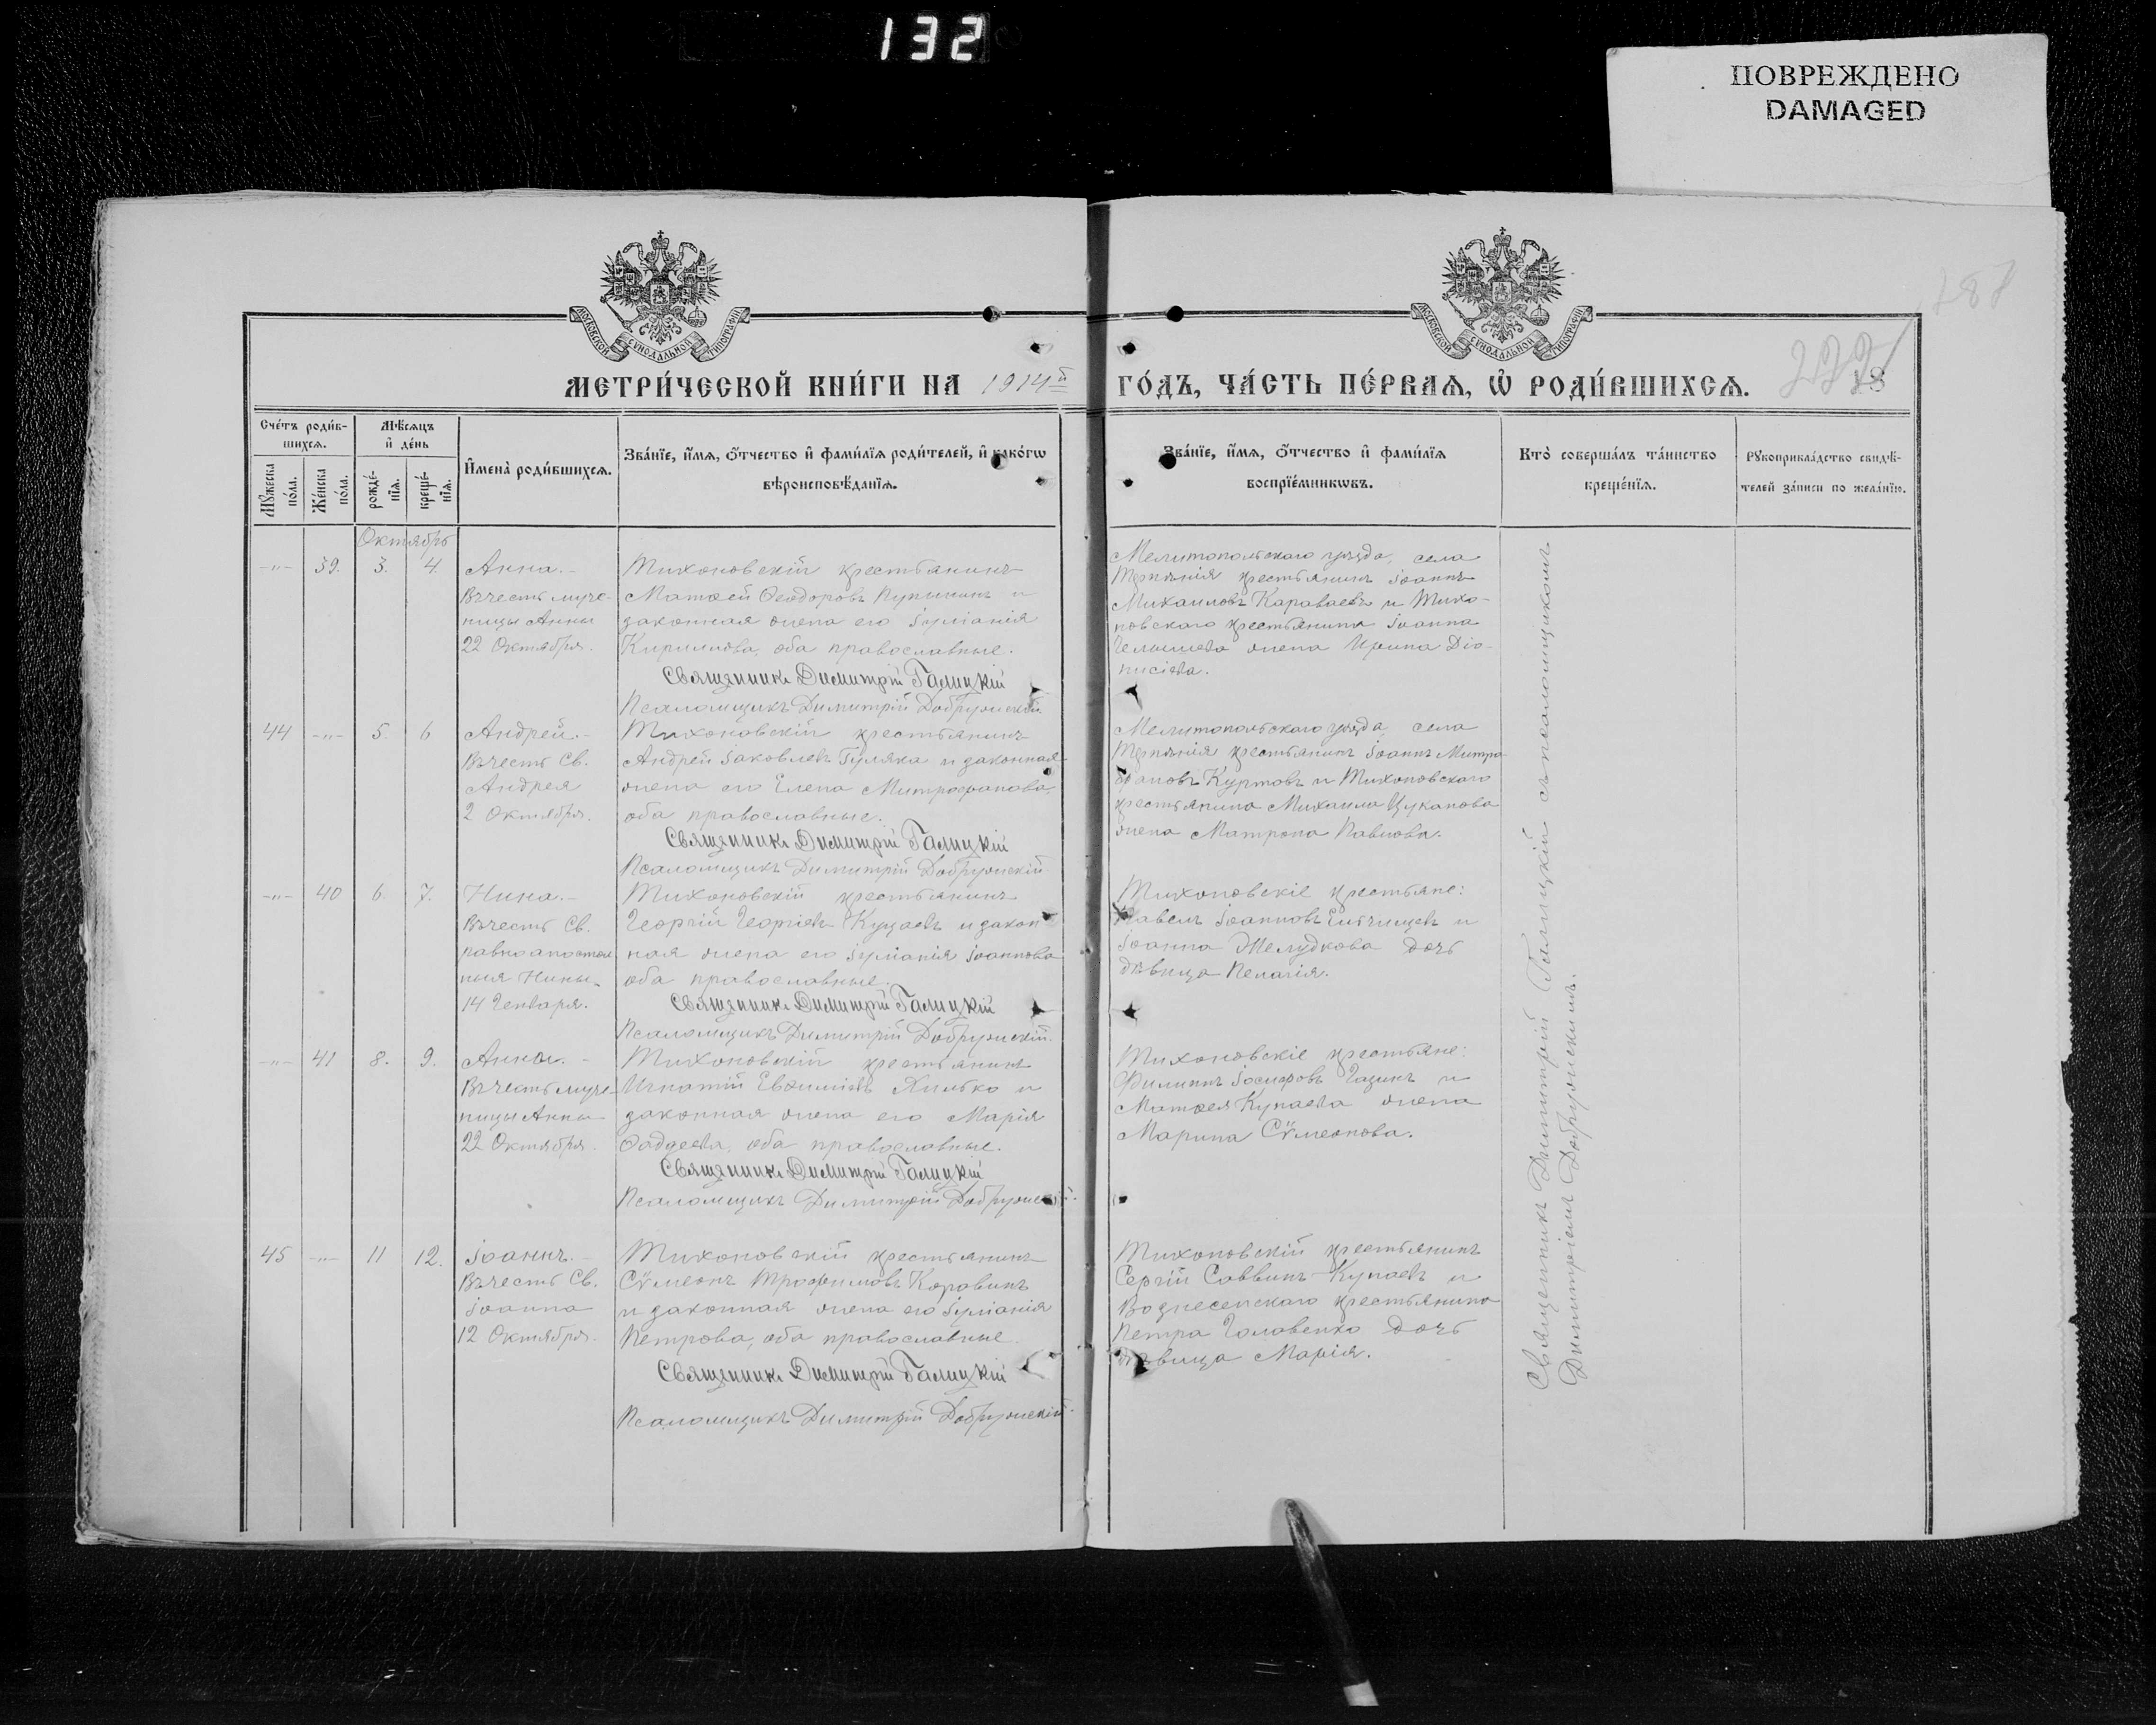 132
ПОВРЕЖДЕНО
DAMAGED
МОСКОВСКОЙ СѴНОДАЛЬНОЙ ТИПОГРАФІИ
МОСКОВСКОЙ СѴНОДАЛЬНОЙ ТИПОГРАФІИ
МЕТРИ́ЧЕСКОЙ КНИ́ГИ НА 1914й ГО́ДЪ, ЧА́СТЬ ПЕ́РВАЯ, Ѡ РОДИ́ВШИХСѦ.
Сче́тъ роди́в-
шихсѧ.
Мѣ́сѧцъ
и де́нь
Мꙋжеска
по́ла.
Же́нска
по́ла.
рожде́-
нїѧ.
креще́-
нїѧ.
И҆мена̀ роди́вшихсѧ.
Зва́нїе, и҆́мѧ, ѻ҆́тчество и҆ фами́лїѧ роди́телей, и҆ како́гѡ
вѣроисповѣ́данїѧ.
Зва́нїе, и҆́мѧ, ѻ҆́тчество и҆ фами́лїѧ
воспрїе́мникѡвъ.
Кто̀ соверша́лъ та́инство
креще́нїѧ.
Рꙋкоприкла́дство свидѣ́-
телей за́писи по жела́нїю.
Октябрь
-„- 39. 3. 4. Анна.-
Въ честь муче-
ницы Анны
22 Октября.
Тихоновскій крестьянинъ
Матѳей Ѳеодоровъ Пупынинъ и
законная жена его Іуліанія
Кириллова, оба православные.
Священникъ Димитрій Галицкій
Псаломщикъ Димитрій Добружскій
Мелитопольскаго уѣзда, села
Терпѣнія крестьянинъ Іоаннъ
Михаиловъ Караваевъ и Тихо-
новскаго крестьянина Іоанна
жена Ирина Діо-
нисіева.
44 -„- 5 6 Андрей.-
Въ честь Св.
Андрея
2 Октября.
Тихоновскій крестьянинъ
Андрей Іаковлевъ Гуляка и законная
жена его Елена Митрофанова,
оба православные.
Священникъ Димитрій Галицкій
Псаломщикъ Димитрій Добружскій
Мелитопольскаго уѣзда, села
Терпѣнія крестьянинъ Іоаннъ Митро-
фановъ Куртовъ и Тихоновскаго
крестьянина Михаила Цуканова
жена Матрона Павлова.
-„- 40 6 7. Нина.-
Въ честь Св.
равноапостол
ныя Нины.
14 Генваря.
Тихоновскій крестьянинъ
Георгій Георгіевъ и закон
ная жена его Іуліанія Іоаннова
оба православные.
Священникъ Димитрій Галицкій
Псаломщикъ Димитрій Добружскій.
Тихоновскіе крестьяне:
Павелъ Іоанновъ и
Іоанна Желудкова дочь
дѣвица Пелагія.
-„- 41 8. 9. Анна.-
Въ честь муче-
ницы Анны
22 Октября.
Тихоновскій крестьянинъ
Игнатій Евѳиміевъ Хилько и
законная жена его Марія
Ѳаддеева, оба православные.
Священникъ Димитрій Галицкій
Псаломщикъ Димитрій Добружскій.
Тихоновскіе крестьяне:
Филиппъ Іосифовъ и
Матѳея Купаева жена
Марина Сѵмеонова.
45 -„- 11 12. Іоаннъ.-
Въ честь Св.
Іоанна
12 Октября.
Тихоновскій крестьянинъ
Сѵмеонъ Трофимовъ Коравинъ
и законная жена его Іуліанія
Петрова, оба православные.
Священникъ Димитрій Галицкій
Псаломщикъ Димитрій Добружскій.
Тихоновскій крестьянинъ
Сергій Саввинъ Купаевъ и
Вознесенскаго крестьянина
Петра Головенко дочь
дѣвица Марія.
Священникъ Димитрій Галицкій съ псаломщикомъ
Димитріемъ Добружскимъ.